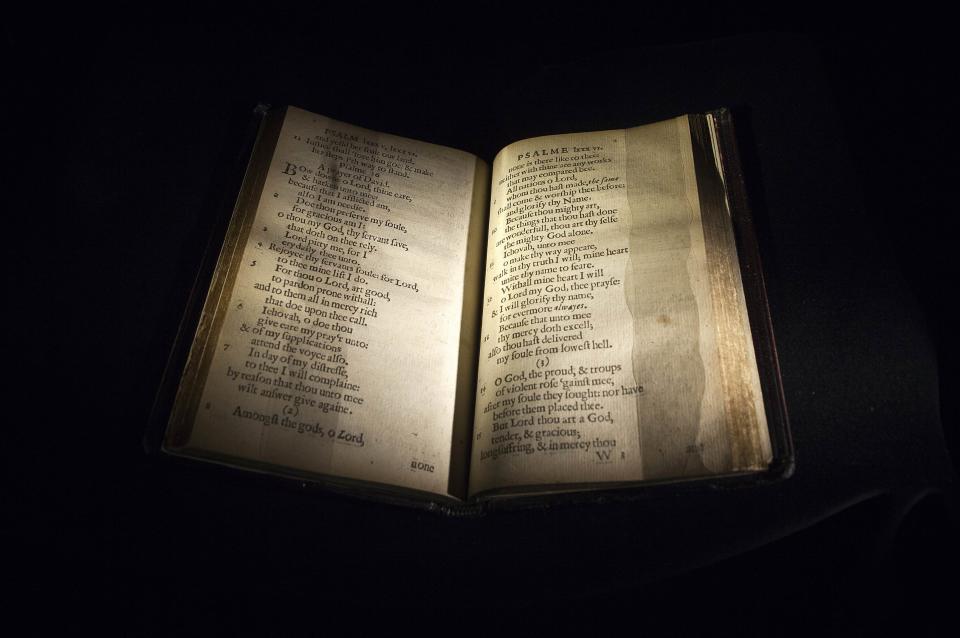 PSALM lxxx v, lxxx vi.
and yeild her fruit our land.
11 Justice shall 'fore him goe, & make
her steps i'th way to stand.
Psalme 86
A prayer of David.
BOw downe o Lord, thine eare,
& harken unto mee:
because that I afflicted am,
also I am needie.
2 Doe thou preserve my soule,
for gracious am I:
o thou my God, thy servant save,
that doth on thee rely.
3 Lord pitty me, for I
cry dayly thee unto.
4 Rejoyce thy servants soule: for Lord,
to thee mine lift I do.
5 For thou o Lord, art good,
to pardon prone withall:
and to them all in mercy rich
that doe upon thee call.
6 Iehovah, o doe thou
give eare my pray'r unto:
& of my supplications
attend the voyce also.
7 In day of my distresse,
to thee I will complaine:
by reason that thou unto mee
wilt answer give againe.
(2)
8 Amongst the gods, o Lord,
none
PSALME lxxx vi.
none is there like to thee:
neither with thine are any works
that may compared bee.
All nations o Lord,
whom thou hast made, the same
shall come & worship thee before:
and glorify thy Name.
Because thou mighty art,
the things that thou hast done
are wonderfull, thou art thy selfe
the mighty God alone.
Iehovah, unto mee
o make thy way appeare,
walk in thy truth I will; mine heart
unite thy name to feare.
Withall mine heart I will
o Lord my God, thee prayse:
& I will glorify thy name,
for evermore alwayes.
Because that unto mee
thy mercy doth excell;
also thou hast delivered
my soule from lowest hell.
(3)
14 O God, the proud, & troups
of violent rose 'gainst mee,
after my soule they sought: nor have
before them placed thee.
15 But Lord thou art a God,
tender, & gracious;
longsuffring, & in mercy thou
W 3